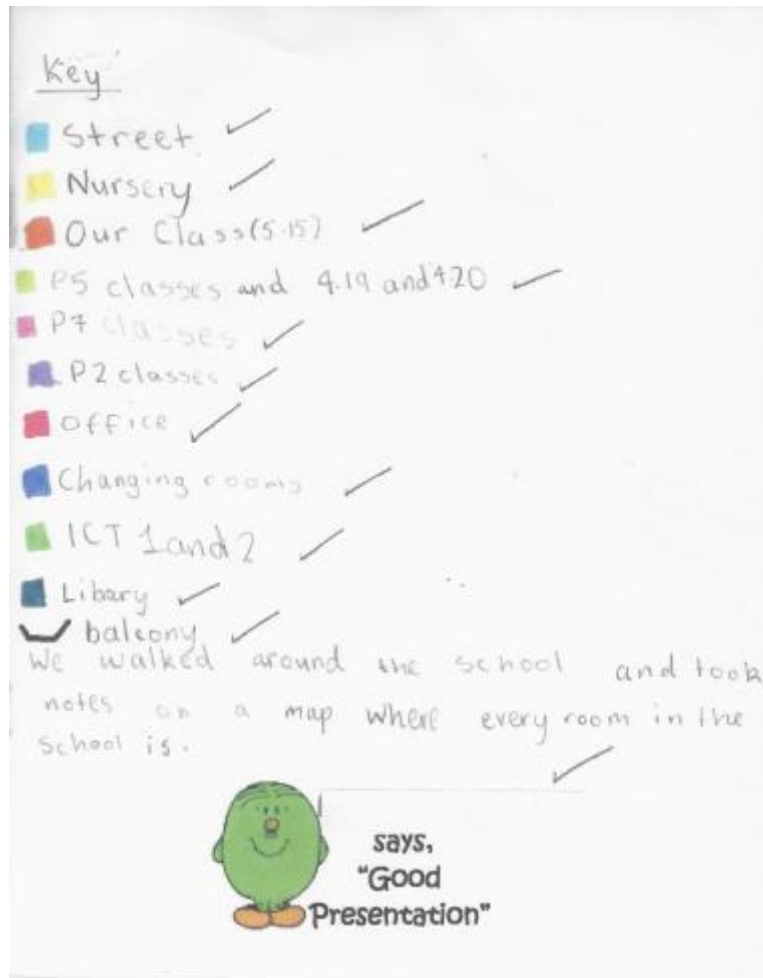 Key
Street
Nursery
Our Class (5.15)
P5 classes and 4.19 and 4.20
P7 classes
P2 classes
office
Changing rooms
ICT 1 and 2
Libary
balcony
We walked around the school and took
notes on a map where every room in the
School is.
says,
"Good
Presentation"